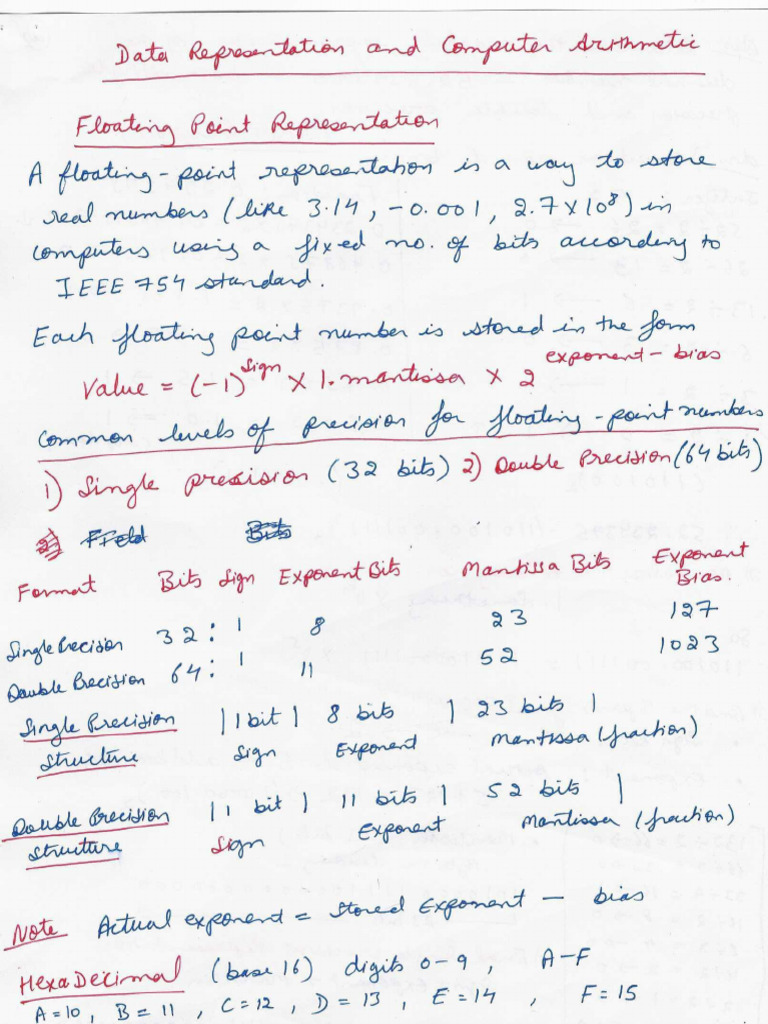 Data Representation and Computer Arithmetic
Floating Point Representation
A floating-point representation is a way to store
real numbers (like 3.14, -0.001, 2.7X10⁸) in
computers using a fixed no. of bits according to
IEEE 754 standard.
Each floating point number is stored in the form
Value = (-1)^Sign X 1.mantissa X 2^exponent-bias
Common levels of precision for floating-point numbers
1) Single precision (32 bits) 2) Double Precision (64 bits)
Format Bits Sign Exponent Bits Mantissa Bits Exponent Bias.
Single Precision 32: 1 8 23 127
Double Precision 64: 1 11 52 1023
Single Precision |1 bit| 8 bits | 23 bits |
Structure Sign Exponent Mantissa (fraction)
Double Precision |1 bit| 11 bits | 52 bits |
Structure Sign Exponent Mantissa (fraction)
Note Actual exponent = Stored Exponent - bias
HexaDecimal (base 16) digits 0-9, A-F
A=10, B=11, C=12, D=13, E=14, F=15